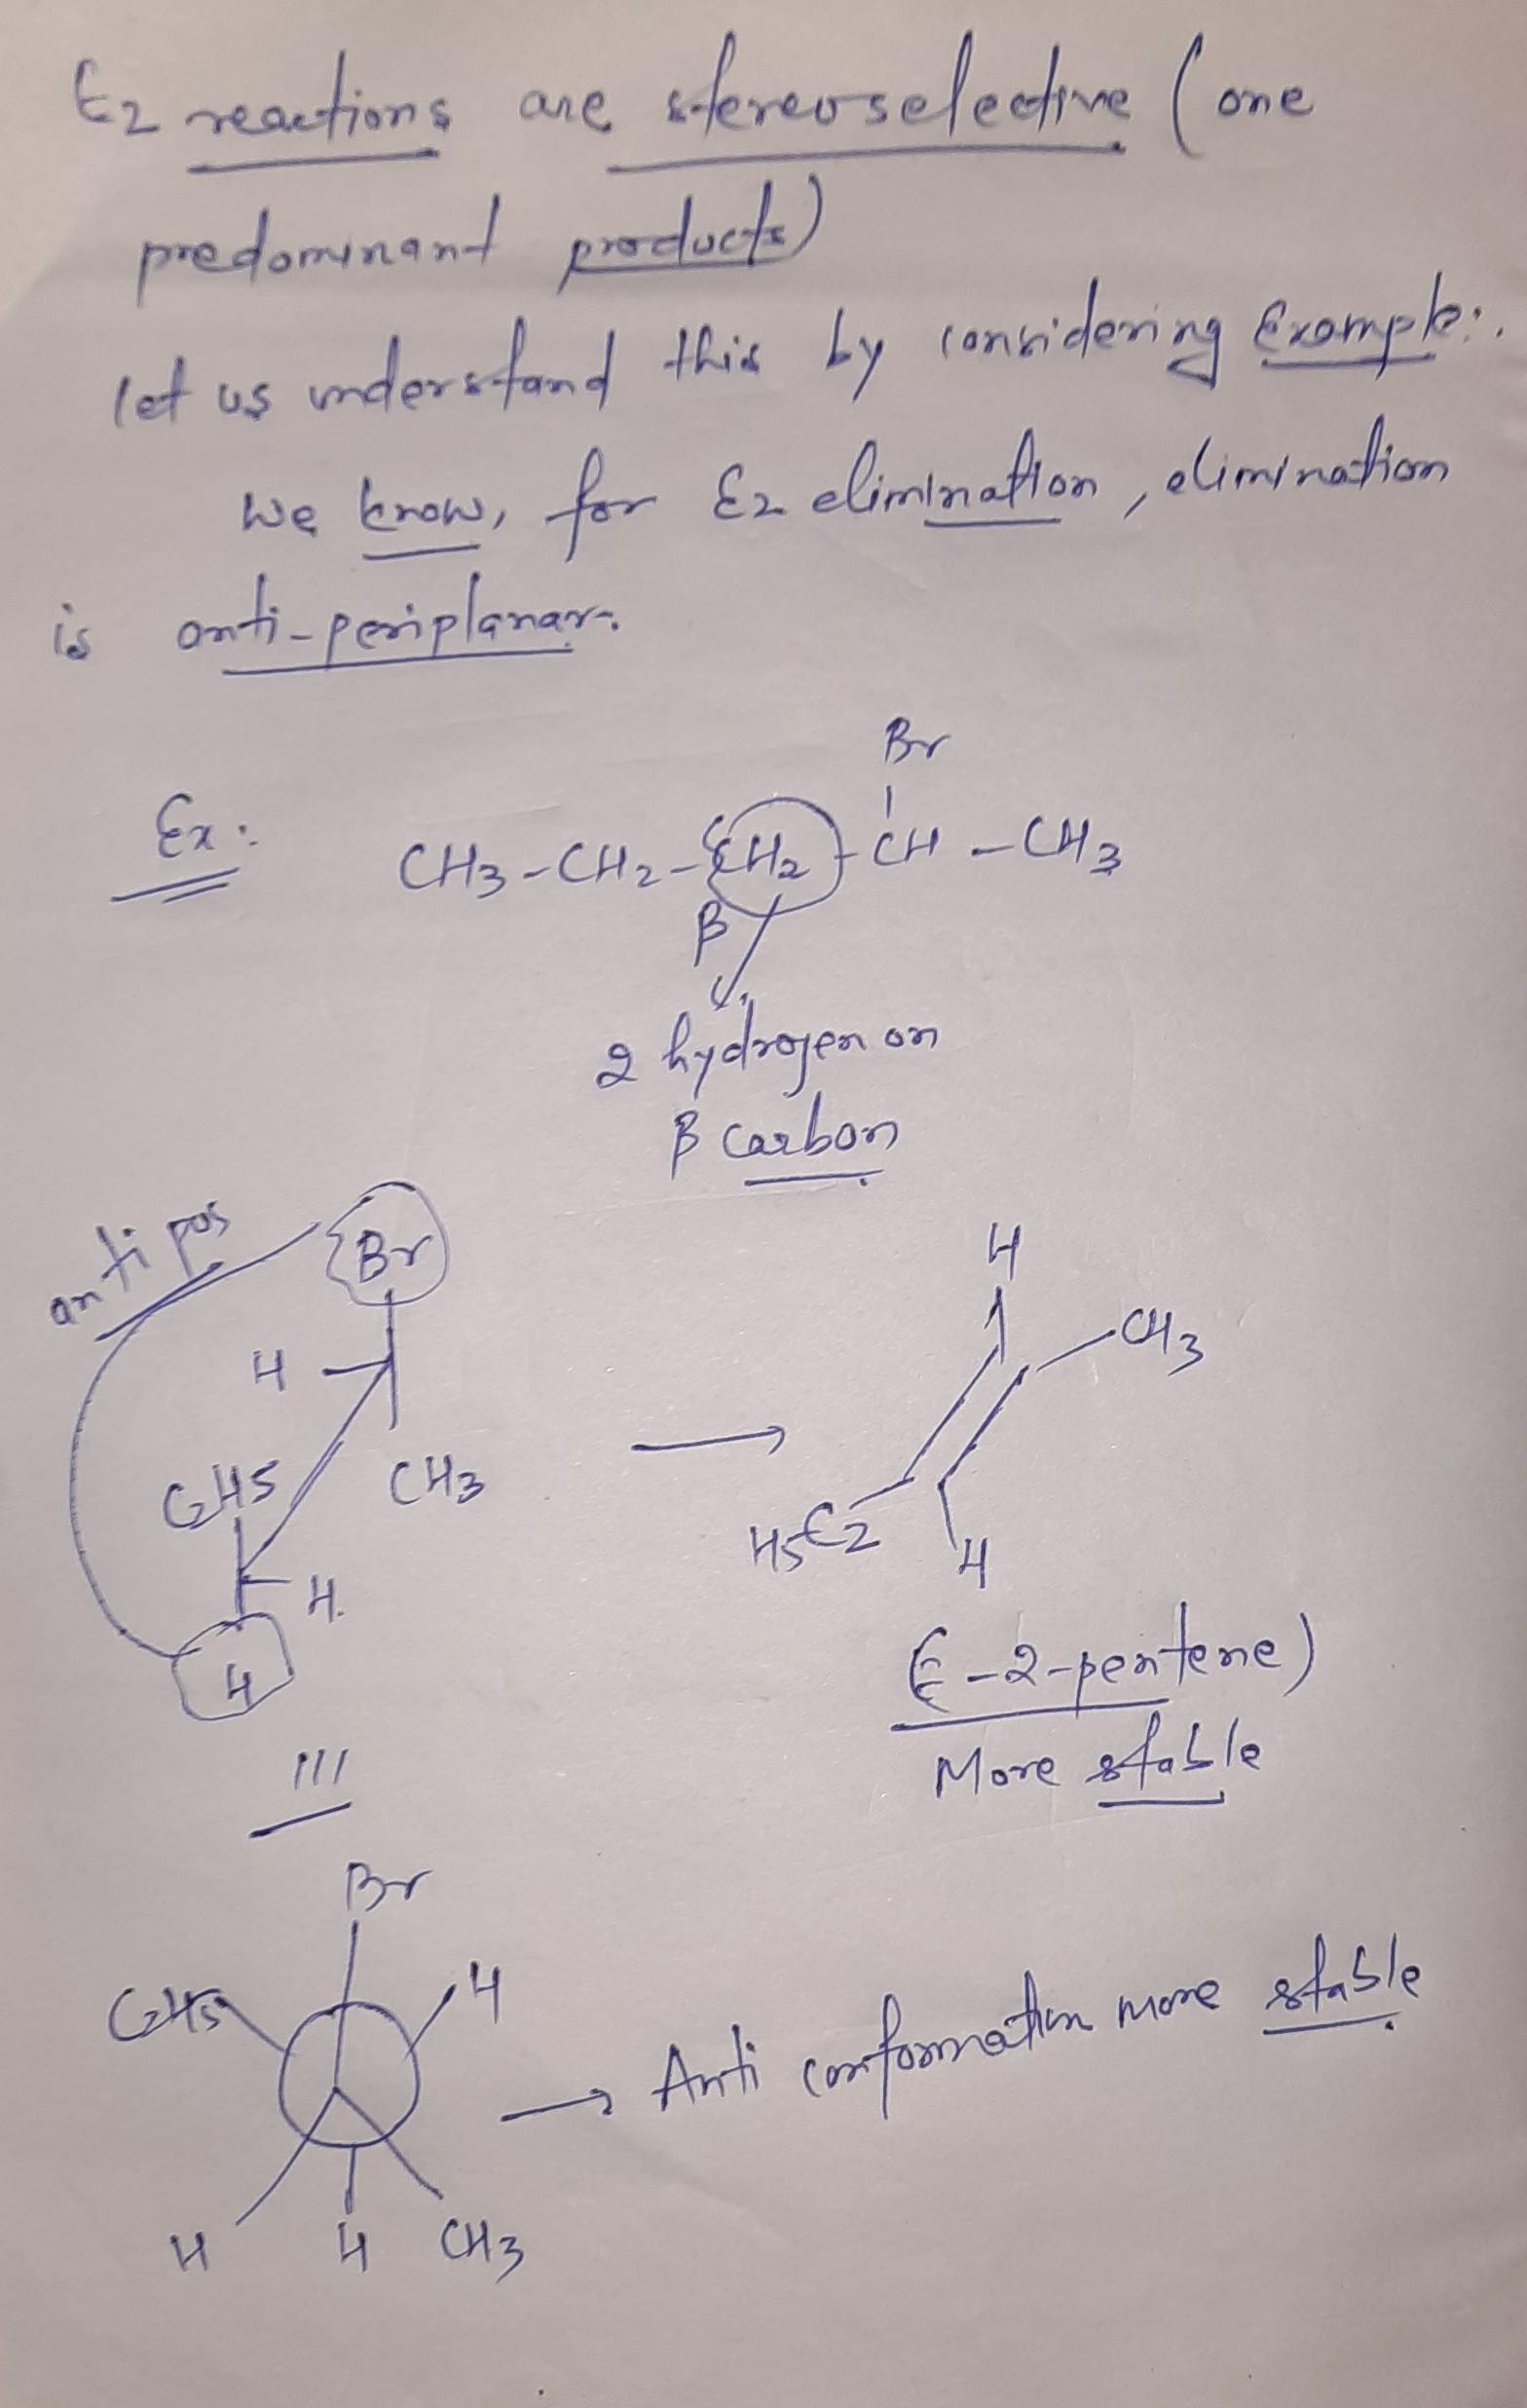 E2 reactions are stereoselective (one
predominant products)
let us understand this by considering Example:.
We know, for E2 elimination, elimination
is anti-periplanar.
Br
Ex: CH3-CH2-CH2-CH-CH3
β
2 hydrogen on
β carbon
anti pos
Br
H
H
CH3
C2H5
CH3
H5C2
H
H.
H
(E-2-pentene)
More stable
Br
C2H5
H
→ Anti conformation more stable
H
H
CH3